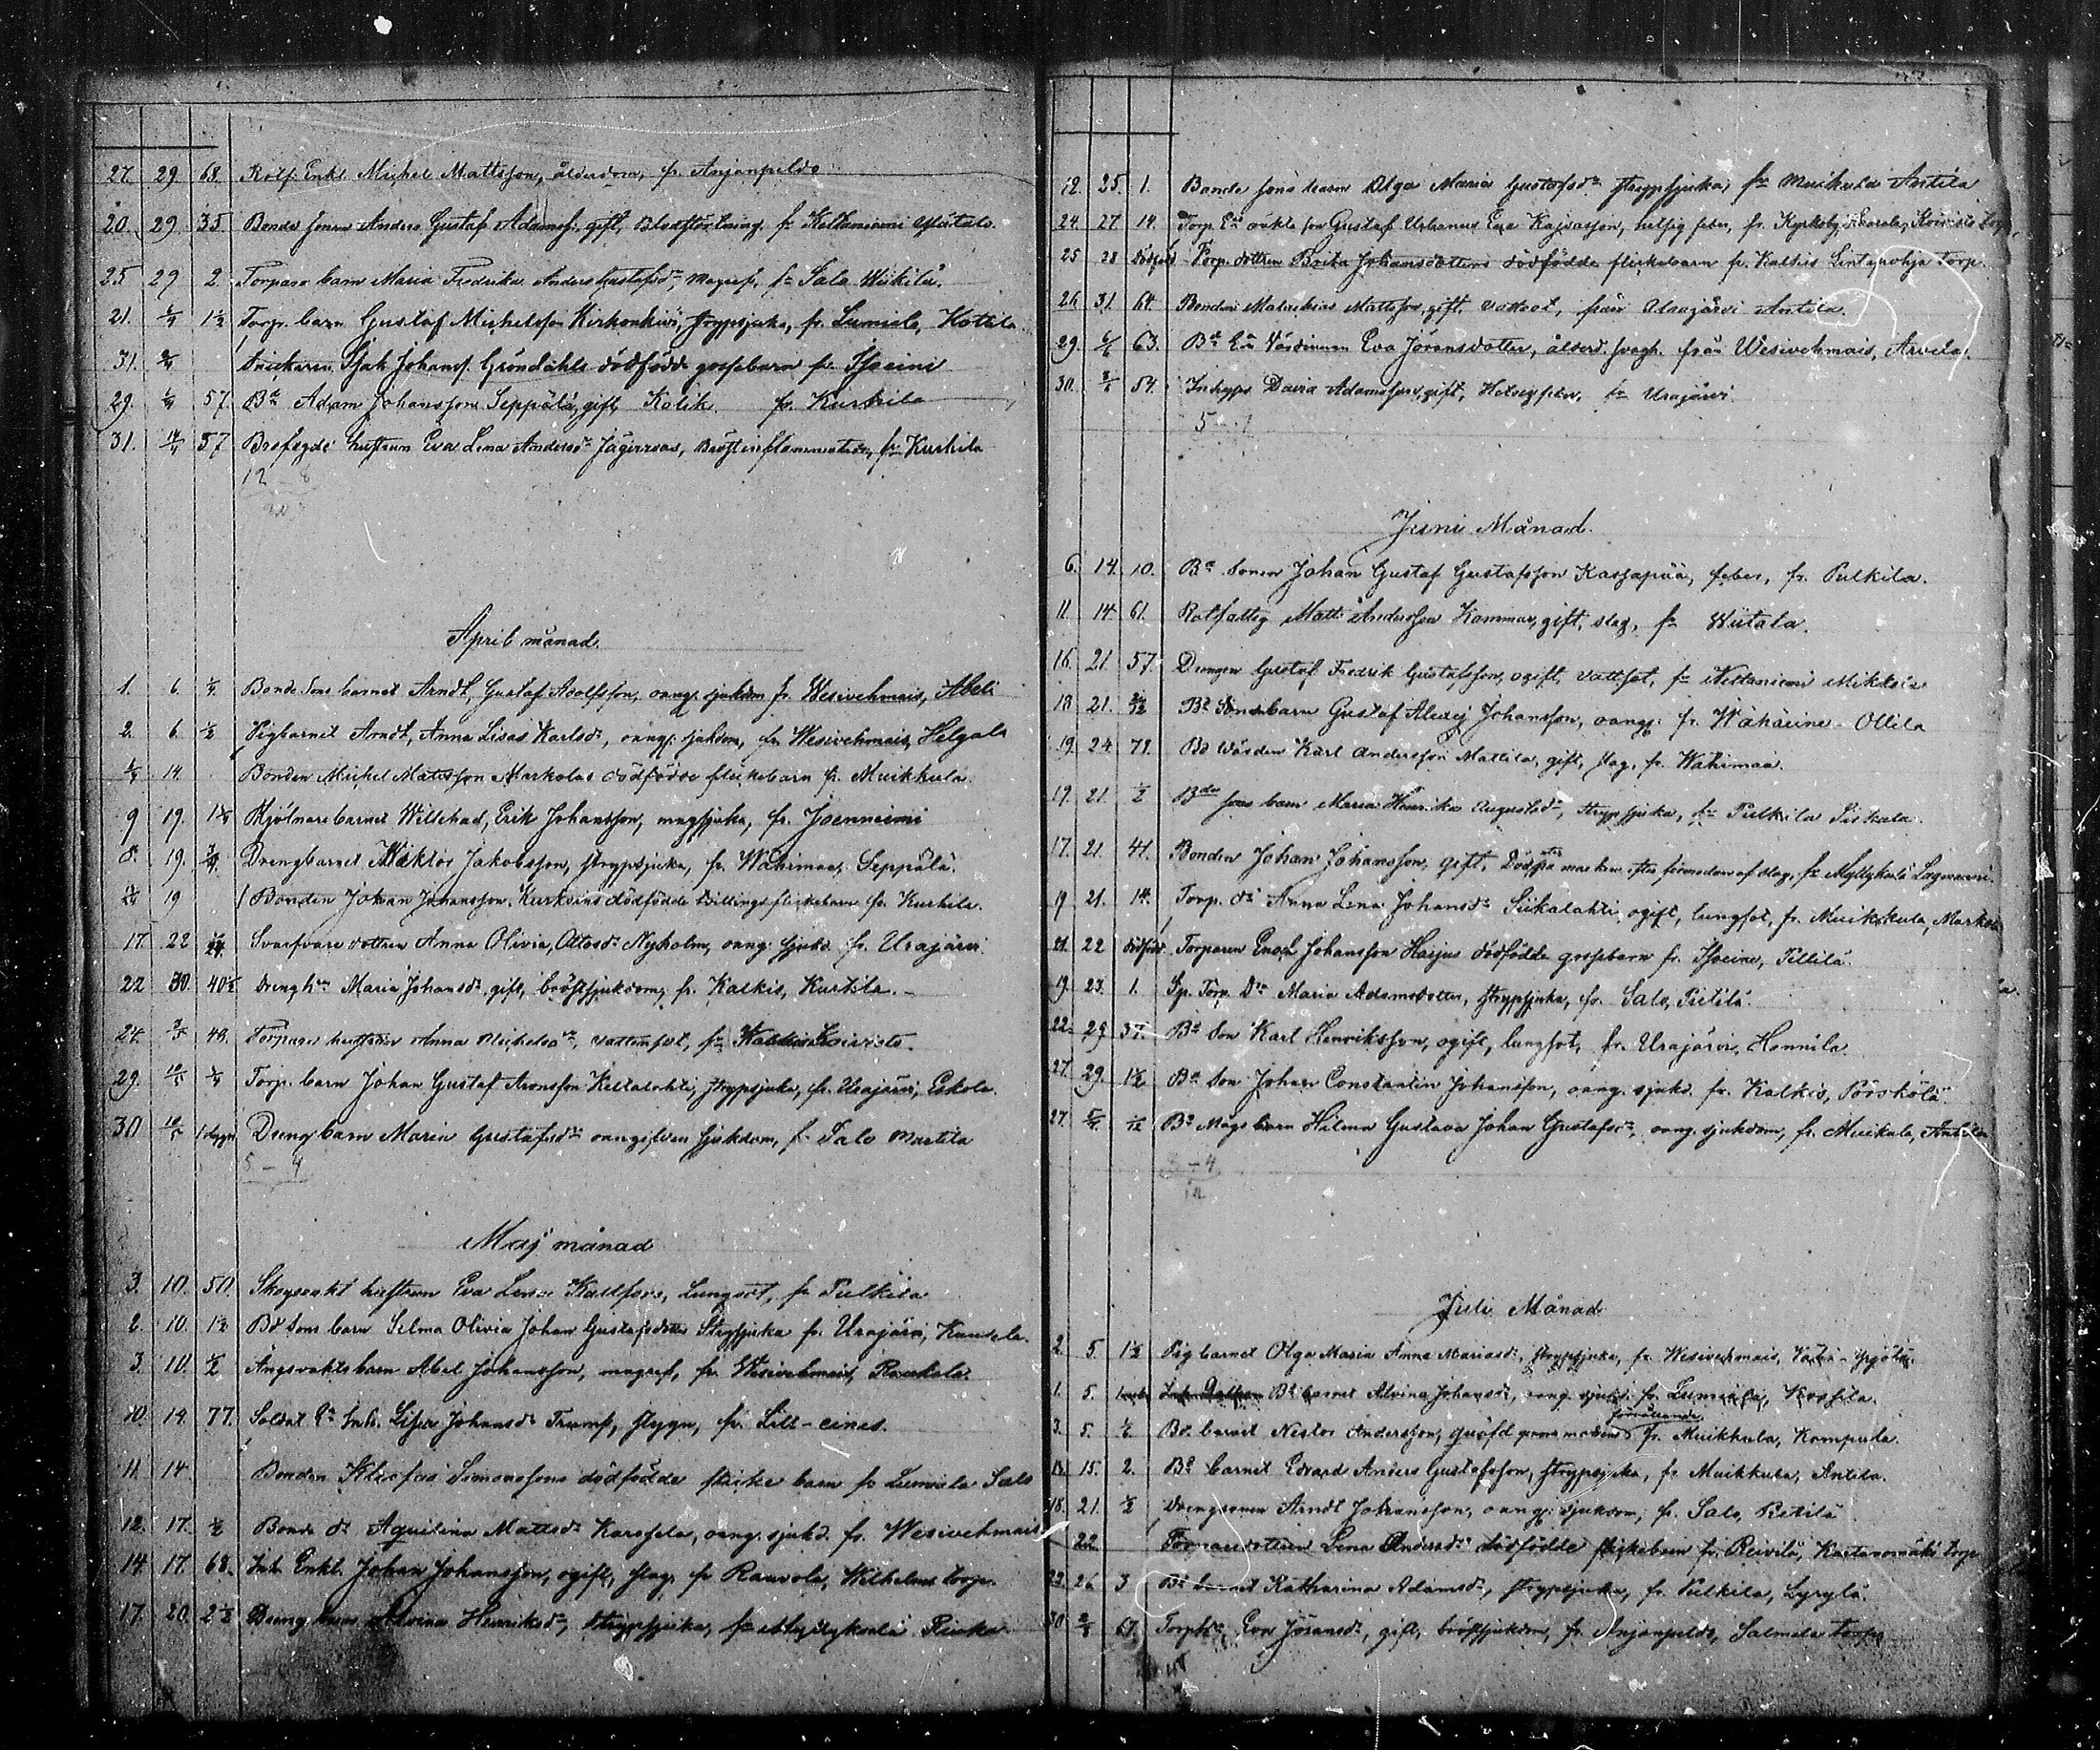 27. 29. 68. Rotf. Enkl. Michel Mattsson, ålderdom, fr. Anjanpeldo
20. 29. 35. Bonde sonen Anders Gustaf Adamss. gift, fr. Keltaniemi
25 29 2. Torpare barn Maria Fredrika Anders Gustafsdr, Magref, fr. Salo Wiikilä.
21. 1/4 1 1/2 Torp. barn Gustaf Michelsson Kirkonkivi, strypsjuka, fr. Lumiala, Kotila
31. 2/4 Snickaren Isak Johanss. Gröndahls dödfödde gossebarn fr. Isoeini
29. 57. Bd. Adam Johansson Seppälä, gift, Kolik. fr. Kurhila
31. 57 hustrun Eva Lena Andersdr Bröstinflammation, fr. Kurhila
12 - 8
April månad.
1. 6. 1/4 Bonde sons barnet Arndt, Gustaf Adolfsson, oang. sjukdom fr. Wesivehmais, Abeli
2. 6. 1/2 Pigbarnet Arndt, Anna Lisas Karlsdr, oang. sjukdom, fr. Wesivehmais, Helgala
14. Bonden Michel Mattsson Markolas dödfödde flickebarn fr. Muikkula
9 19. 1 1/4 Mjölnare barnet Willehad, Erik Johansson, magsjuka, fr. Joenniemi
8. 19. 3/4. Drengbarnet Wiktor Jakobsson, strypsjuka, fr. Wähimaa, Seppälä.
19 Bonden Johan Johansson Kurkoins dödfödde tvillings flickebarn fr. Kurhila.
17. 22 Svarfvare dottren Anna Olivia, Ottosdr Nyholm, oang. sjukd. fr. Urajärvi
22 30. 40 1/2 Drengh. Maria Johansdr. gift, bröstsjukdom, fr. Kalkis, Kurtila.
24. 3/5 48. Torpares hustrun Anna Michelsdr, vattensot, fr. Koivisto.
29. 10/5 3/4 Torp. barn Johan Gustaf Aronsson Keltalahti, strypsjuka, fr. Urajärvi, Eskola.
30 10/5 1 dygn Dreng barn Maria Gustafsdr oangifven sjukdom, fr. Salo Martila
5 - 4
Maj månad
3. 10. 50. Skogvakt hustrun Eva Lena Kallfors, Lungsot, fr. Pulkila
2. 10. 1 1/2 Bd sons barn Selma Olivia Johan Gustafsdotter Strypsjuka fr. Urajärvi, Kansela.
3. 10. 1/2 Ängsvaktsbarn Abel Johansson, magref, fr. Wesivehmais, Raukala.
10. 14. 77. Soldat Lisa Johansdr Trump, flygn, fr. Lill-eines.
11. 14. Bonden Kleofas Simonssons dödfödde flicke barn fr. Lumiala Salo
12. 17. 1/2 Bonde dr. Aquilina Mattsdr Karosela, oang. sjukd. fr. Wesivehmais
14. 17. 68. Inh. Enkl. Johan Johansson, ogift, slag. fr. Rauvola, Wilhelms torp.
17. 20. 2 1/2 Dreng barn Alvina Henriksdr, strypsjuka, fr. Myllykselä
12. 25. 1. Bonde sons barn Olga Maria Gustafsdr. strypsjuka, fr. Muikula Antila
24. 27 14. Torp. Gustaf Urbanus Kajvasson, hetsig feber, fr. Kyrkoby
25 28 dödfödd Torp. dottren Brita Johansdotters dödfödde flickebarn fr. Kalkis Lintupohja torp.
26. 31. 64. Bonden Malachias Mattsson, gift, vattsot, från Urajärvi Antila.
29. 63. Bd. Värdinnan Eva Jöransdotter, från Wesivehmais, Arvela.
30. 54. David Adamsson, gift, Hetsig feber, fr. Urajärvi.
5 - 1
Juni Månad.
6. 14. 10. Bd. sonen Johan Gustaf Gustafsson Kassapää, feber, fr. Pulkila.
11. 14. 61. Rotfattig Matts Andersson Kammar, gift, slag, fr. Wiitala.
16. 21. 57. Drengen Gustaf Fredrik Gustafsson, ogift, vattsot, fr. Keltaniemi Mikkola
18 21. Bd. Sonsbarn Gustaf Alexej Johansson, oang. fr. Wähäeine - Ollila
19. 24. 78. Bd värden Karl Andersson Mattila, gift, slag, fr. Wähimaa.
19. 21. 1/2 Bde sons barn Maria Henrika Augustsdr, strypsjuka, fr. Pulkila Siukala.
17. 21. 41. Bonden Johan Johansson, gift, af slag, fr. Myllykselä Lagmanni.
19. 21. 14. Torp. dr. Anna Lena Johansdr Siikalahti, ogift, lungsot, fr. Muikkula, Markola
21. 22 dödfödd. Torparen Enoch Johansson Harjus dödfödde gossebarn fr. Isoeine, Pillilä.
19. 23. 1. Sp. Torp. Dr. Maria Adamsdotter, strypsjuka, fr. Salo, Pietilä.
22. 29. 37. Bd. Son Karl Henriksson, ogift, lungsot, fr. Urajärvi, Hannila.
27. 29. 1 1/2 Bd. Son Johan Constantin Johansson, oang. sjukd. fr. Kalkis, Pörskölä
27. Bd. Mågs barn Hilma Gustava Johan Gustafsdr, oang. sjukdom, fr. Muikula, Antila
8 - 4
12
Juli Månad
2. 5. 1 1/2 Pig barnet Olga Maria Anna Mariasdr, strypsjuka, fr. Wesivehmais,
1. 5. Bd. barnet Alvina Johansdr, oang. sjukd. fr. Lumiala, Kossila.
3. 5. 1/2 Bd. barnet Nestor Andersson, qväfd genom modrens förvållande fr. Muikkula, Kompula.
15. 2. Bd. barnet Edvard Anders Gustafsson, strypsjuka, fr. Muikkula, Antila.
18. 21. 1/2 Drengsonen Arndt Johansson, oang. sjukdom, fr. Salo, Pietilä
22 Torparedottren Lena Andersdr dödfödde flickebarn fr. Reivilä, Kartanomäki torp
23. 26 3 Bd. barnet Katharina Adamsdr, strypsjuka, fr. Pulkila, Lyrylä.
30 2/8 67. Torph. Eva Jöransdr, gift, bröstsjukdom, fr. Anjanpeldo, Salmela torp